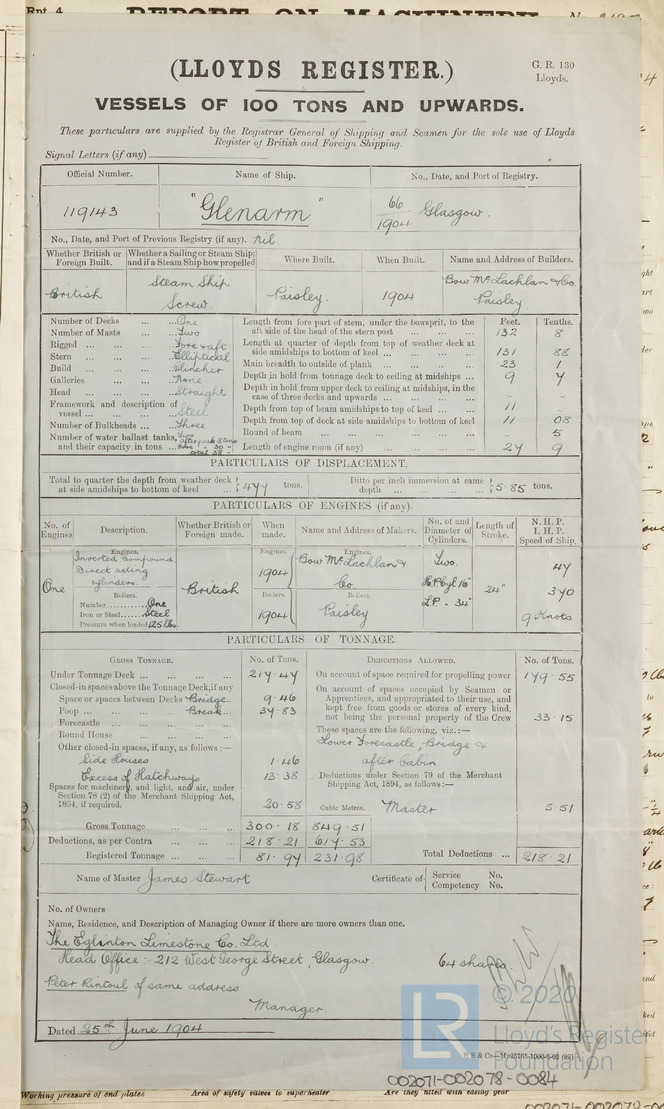 Rpt. 4
REPORT ON MACHINERY
(LLOYDS REGISTER.)
G. R. 130
Lloyds.
VESSELS OF 100 TONS AND UPWARDS.
These particulars are supplied by the Registrar General of Shipping and Seamen for the sole use of Lloyds
Register of British and Foreign Shipping.
Signal Letters (if any)
Official Number. Name of Ship. No., Date, and Port of Registry.
119143 "Glenarm" 66/1904 Glasgow.
No., Date, and Port of Previous Registry (if any). Nil
Whether British or Foreign Built. Whether a Sailing or Steam Ship; and if a Steam Ship how propelled Where Built. When Built. Name and Address of Builders.
British Steam Ship Screw. Paisley. 1904 Bow McLachlan & Co. Paisley
Feet. Tenths.
Number of Decks ... ... One
Number of Masts ... Two
Rigged ... ... Fore & aft
Stern ... ... Elliptical
Build ... ... Clincher
Galleries ... ... None
Head ... ... Straight
Framework and description of vessel ... ... Steel
Number of Bulkheads ... Three
Number of water ballast tanks, and their capacity in tons ... Two
Length from fore part of stem, under the bowsprit, to the aft side of the head of the stern post 132 8
Length at quarter of depth from top of weather deck at side amidships to bottom of keel 131 88
Main breadth to outside of plank 23 1
Depth in hold from tonnage deck to ceiling at midships 9 4
Depth in hold from upper deck to ceiling at midships, in the case of three decks and upwards - -
Depth from top of beam amidships to top of keel 11 -
Depth from top of deck at side amidships to bottom of keel 11 08
Round of beam - 5
Length of engine room (if any) 24 9
PARTICULARS OF DISPLACEMENT.
Total to quarter the depth from weather deck at side amidships to bottom of keel 477 tons. Ditto per inch immersion at same depth 5.85 tons.
PARTICULARS OF ENGINES (if any).
No. of Engines Description. Whether British or Foreign made. When made. Name and Address of Makers. No. of and Diameter of Cylinders. Length of Stroke. N. H. P. I. H. P. Speed of Ship.
One
Engines.
Inverted compound
Direct acting
cylinders
Boilers.
Number One
Iron or Steel Steel
Pressure when loaded 125 lbs.
British
Engines. 1904
Boilers. 1904
Engines.
Bow McLachlan & Co
Boilers.
Paisley
Two.
H.P. Cyl 16"
L.P. - 34"
24"
47
370
9 Knots
PARTICULARS OF TONNAGE.
GROSS TONNAGE. No. of Tons. DEDUCTIONS ALLOWED. No. of Tons.
Under Tonnage Deck 217.47
Closed-in spaces above the Tonnage Deck, if any
Space or spaces between Decks Bridge 9.46
Poop Break 37.83
Forecastle
Round House
Other closed-in spaces, if any, as follows :—
Side Houses 1.46
Excess of Hatchways 13.38
Spaces for machinery, and light, and air, under Section 78 (2) of the Merchant Shipping Act, 1894, if required. 20.58
Cubic Metres.
Gross Tonnage 300.18 849.51
Deductions, as per Contra 218.21 617.53
Registered Tonnage 81.97 231.98
On account of space required for propelling power 179.55
On account of spaces occupied by Seamen or Apprentices, and appropriated to their use, and kept free from goods or stores of every kind, not being the personal property of the Crew 33.15
These spaces are the following, viz. :—
Lower Forecastle, Bridge &
after Cabin
Deductions under Section 79 of the Merchant Shipping Act, 1894, as follows :—
Master 5.51
Total Deductions ... 218.21
Name of Master James Stewart Certificate of Service No. Competency No.
No. of Owners
Name, Residence, and Description of Managing Owner if there are more owners than one.
The Eglinton Limestone Co. Ltd
Head Office :- 212 West George Street, Glasgow. 64 shares
Peter Rintoul of same address
Manager.
Dated 25th June 1904
© 2020
LR
Lloyd's Register
Foundation
002071-002078-0084
Working pressure of end plates Area of safety valves to superheater Are they fitted with easing gear